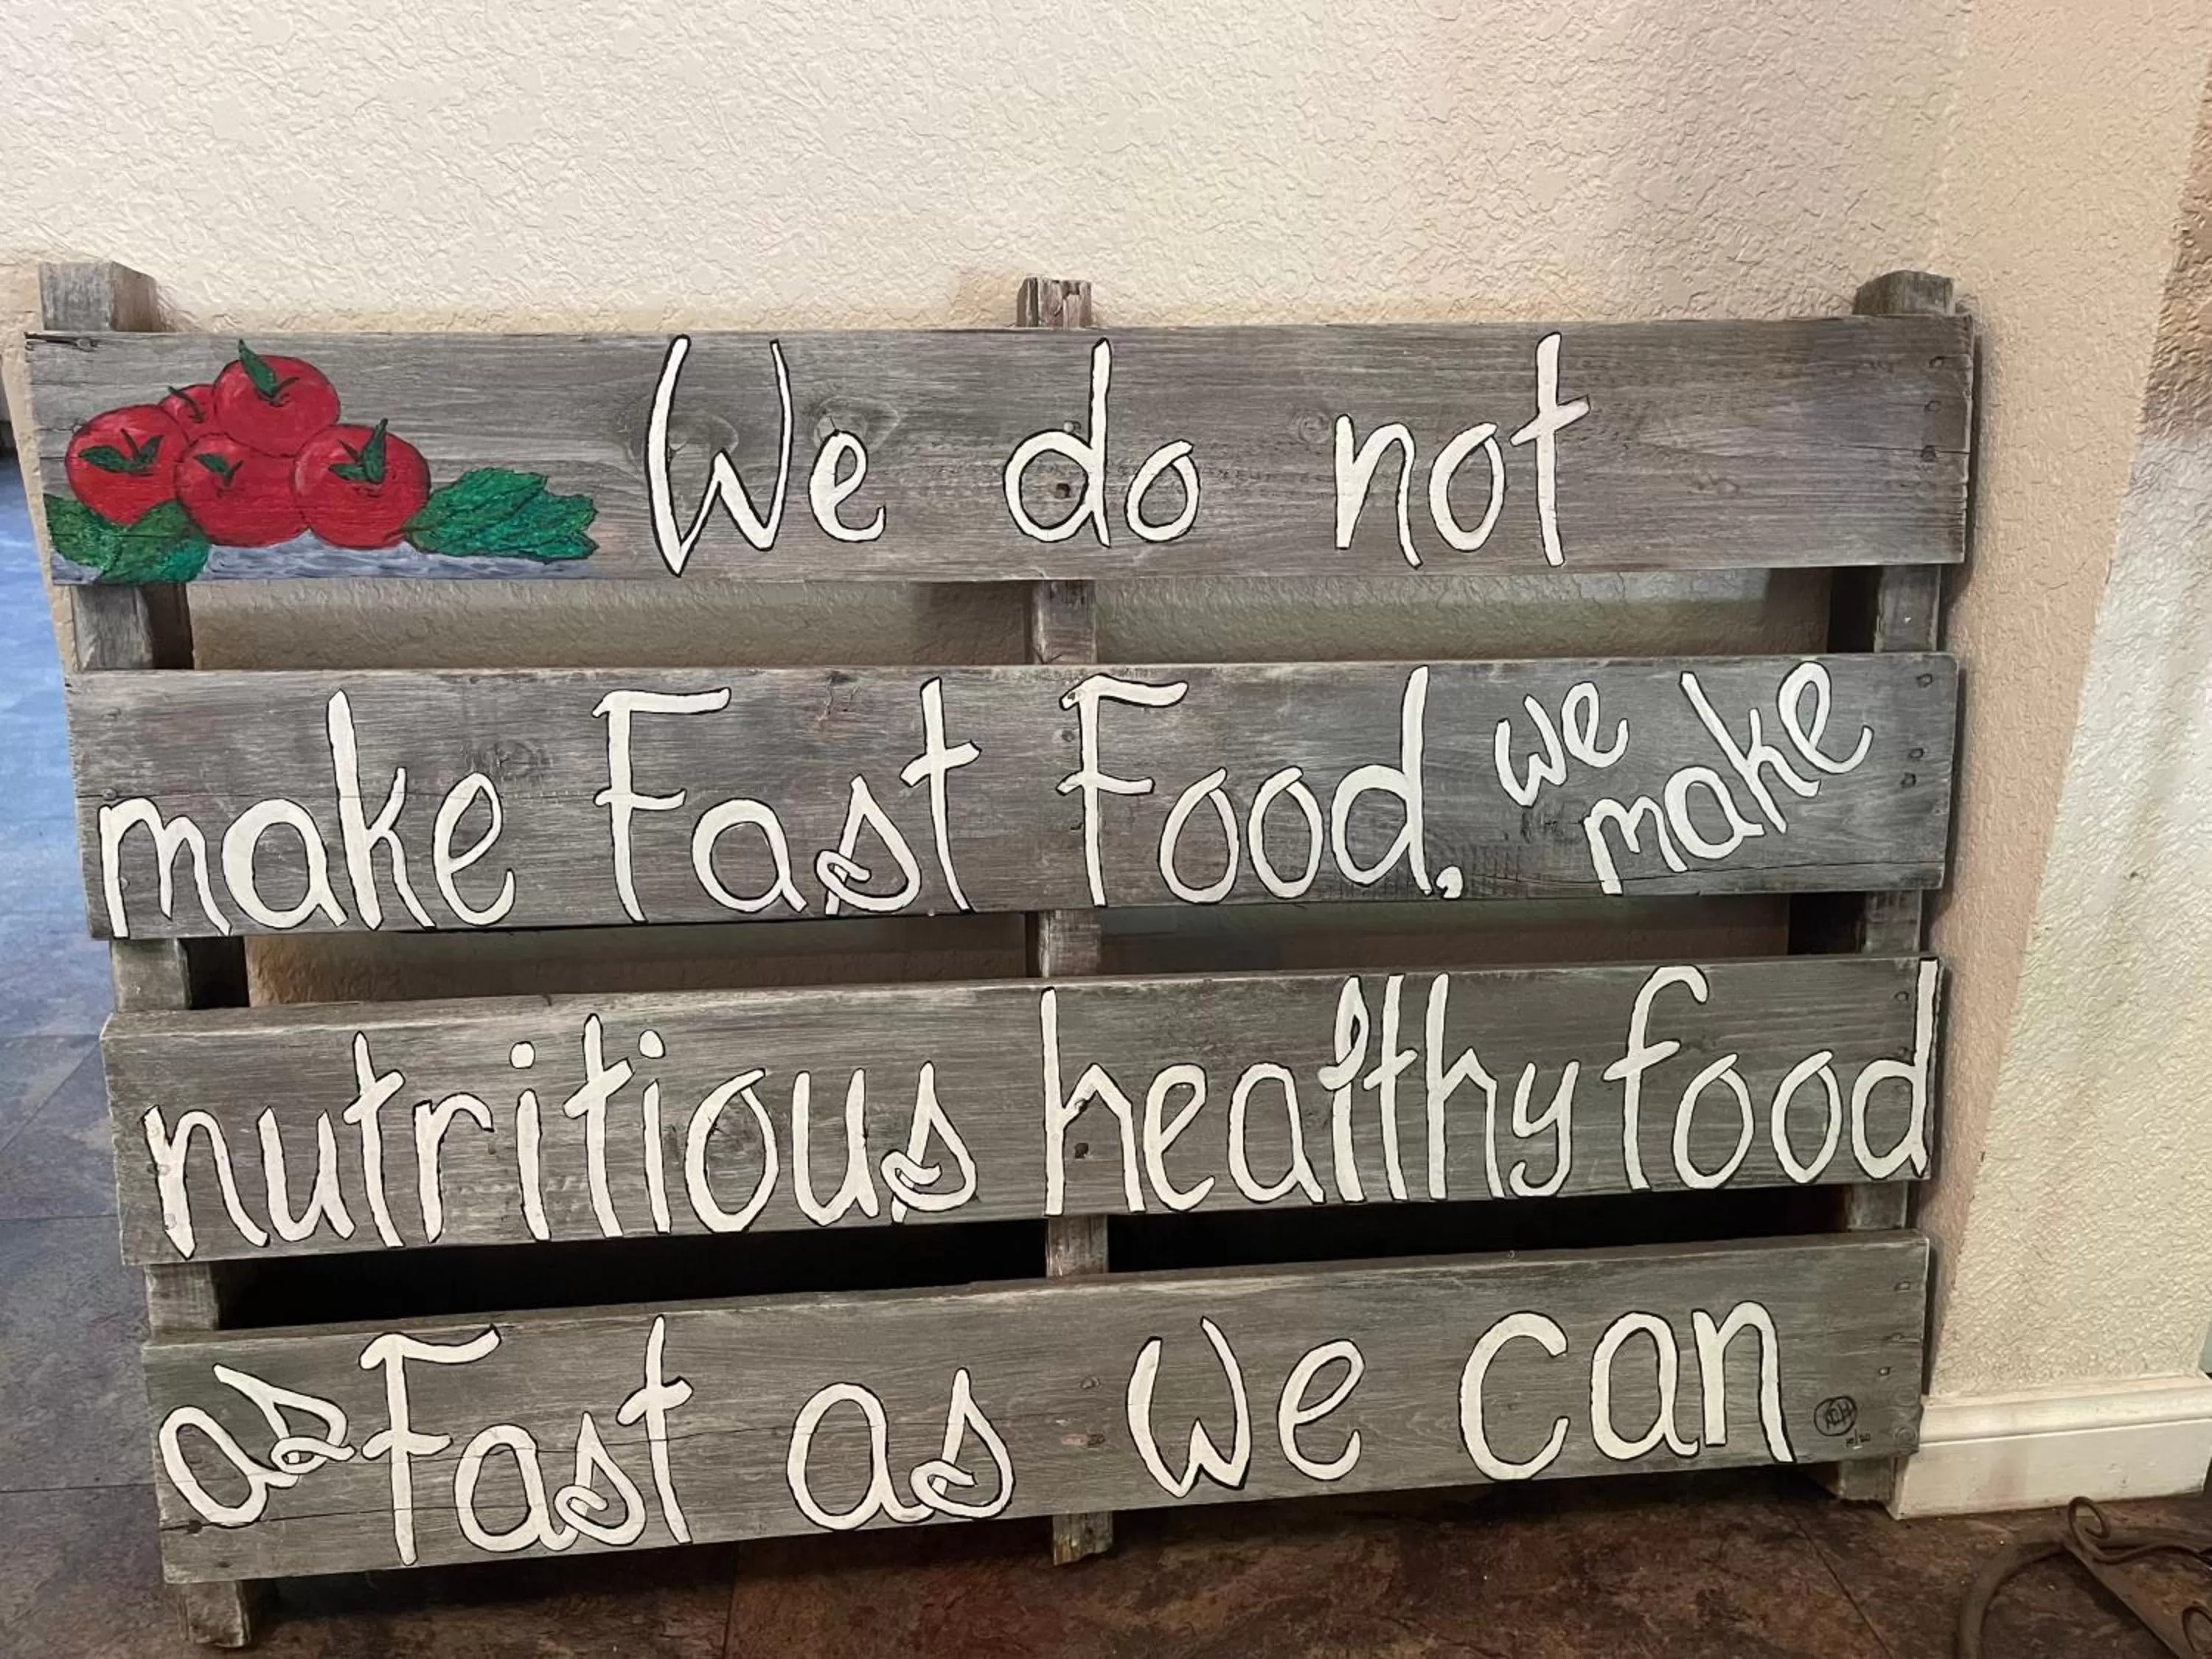 We do not
make Fast Food, we make
nutritious healthy food
as Fast as We can